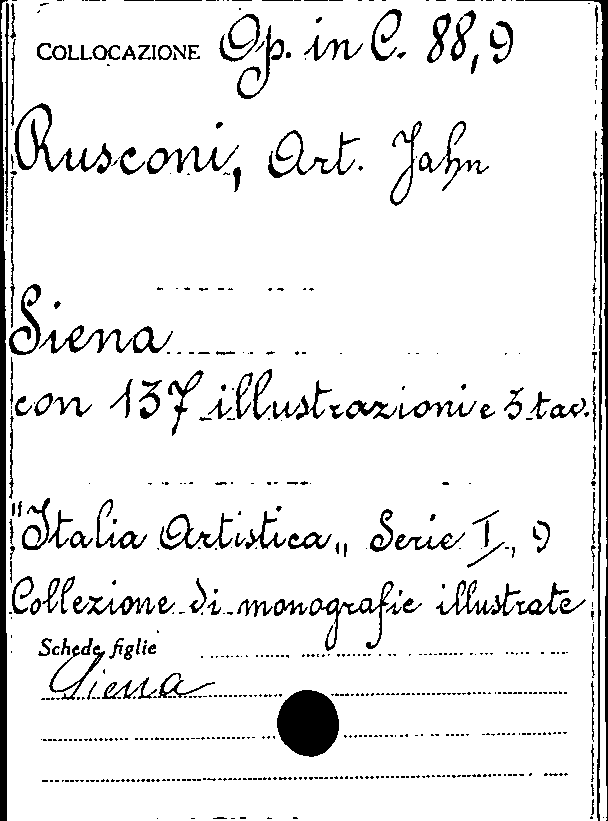 COLLOCAZIONE Op. in C. 88,9
Rusconi, Art. Jahn
Siena
con 137 illustrazioni e 3 tav.
"Italia Artistica„ Serie I, 9
Collezione di monografie illustrate
Schede figlie
Siena